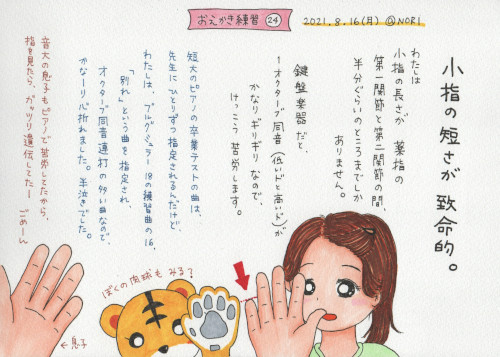 おえかき練習 24
2021.8.16(月) @NORI
小指の短さが 致命的。
わたしは
小指の長さが 薬指の
第一関節と第二関節の間、
半分ぐらいのところまでしか
ありません。
鍵盤楽器だと、
1オクターブ同音(低いドと高いド)が
かなりギリギリなので、
けっこう苦労します。
短大のピアノの卒業テストの曲は、
先生にひとりずつ指定されるんだけど、
わたしは、ブルグミュラー18の練習曲の16、
「別れ」という曲を指定され、
オクターブ同音連打の多い曲なので、
かな〜り心折れました。半泣きでした。
音大の息子もピアノで苦労してたから、
指を見たら、ガッツリ遺伝してた―
ごめーん
ぼくの肉球もみる?
←息子